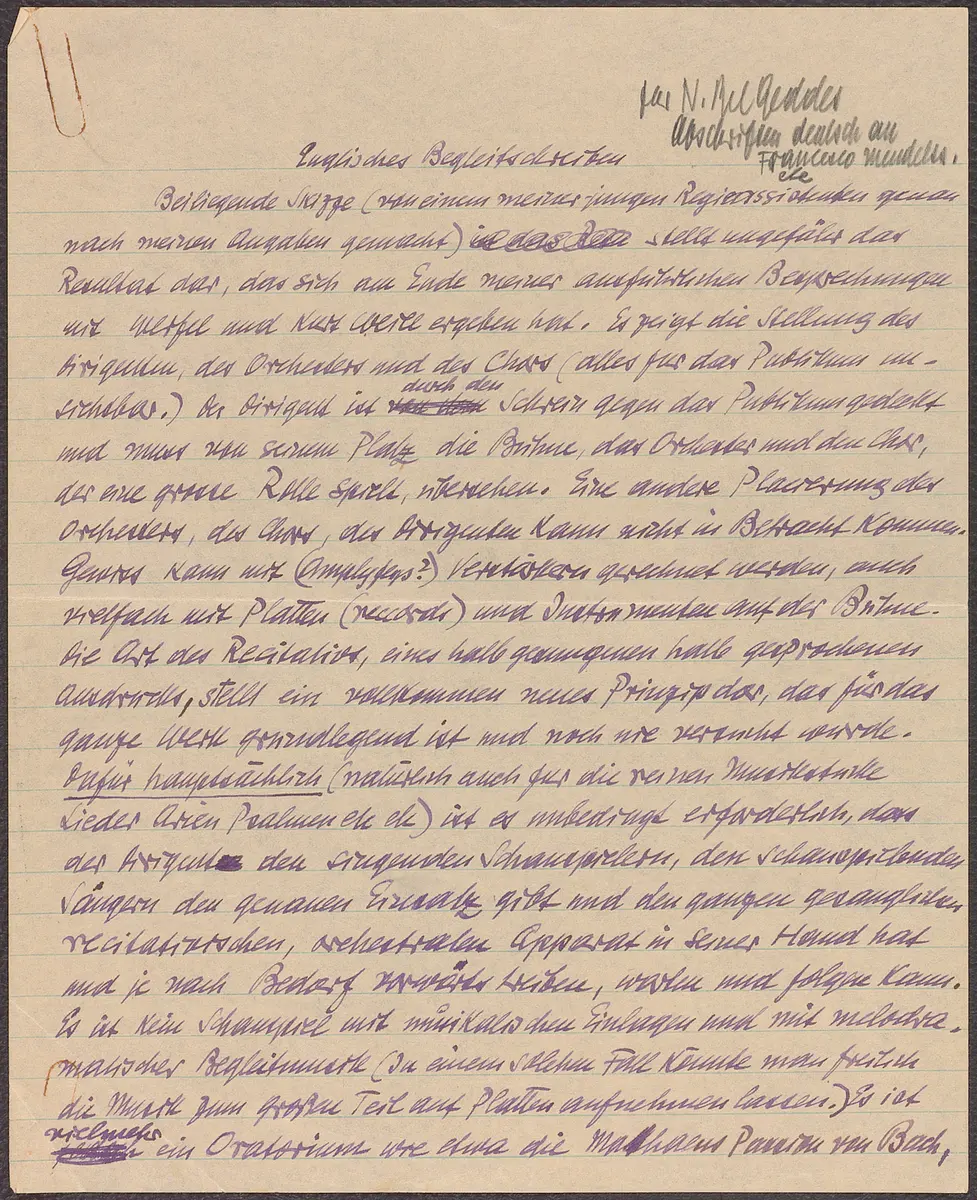 für N. Bel Geddes
Abschriften deutsch an
Francesco Mendels.
etc
Englisches Begleitschreiben
Beiliegende Skizze (von einem meiner jungen Regieassistenten genau
nach meinen Angaben gemacht) stellt ungefähr das
Resultat dar, das sich am Ende meiner ausführlichen Besprechungen
mit Werfel und Kurt Weill ergeben hat. Es zeigt die Stellung des
Dirigenten, des Orchesters und des Chors (alles für das Publikum un-
sichtbar.) Der Dirigent ist durch den Schrein gegen das Publikum gedeckt
und muss von seinem Platz die Bühne, das Orchester und den Chor,
der eine grosse Rolle spielt, übersehen. Eine andere Placierung des
Orchesters, des Chors, des Dirigenten kann nicht in Betracht kommen.
Gewiss kann mit (Amplyfyers?) Verstärkern gerechnet werden, auch
vielfach mit Platten (records) und Instrumenten auf der Bühne.
Die Art des Recitativs, eines halb gesungenen halb gesprochenen
Ausdrucks, stellt ein vollkommen neues Prinzip dar, das für das
ganze Werk grundlegend ist und noch nie versucht wurde.
Dafür hauptsächlich (natürlich auch für die reinen Musikstücke
Lieder Arien Psalmen etc etc) ist es unbedingt erforderlich, dass
der Dirigent den singenden Schauspielern, den schauspielenden
Sängern den genauen Einsatz gibt und den ganzen gesanglichen
recitativischen, orchestralen Apparat in seiner Hand hat
und je nach Bedarf vorwärts treiben, warten und folgen kann.
Es ist kein Schauspiel mit musikalischen Einlagen und mit melodra-
matischer Begleitmusik (In einem solchen Fall könnte man freilich
die Musik zum großen Teil auf Platten aufnehmen lassen.) Es ist
vielmehr ein Oratorium wie etwa die Mathaeus Passion von Bach,